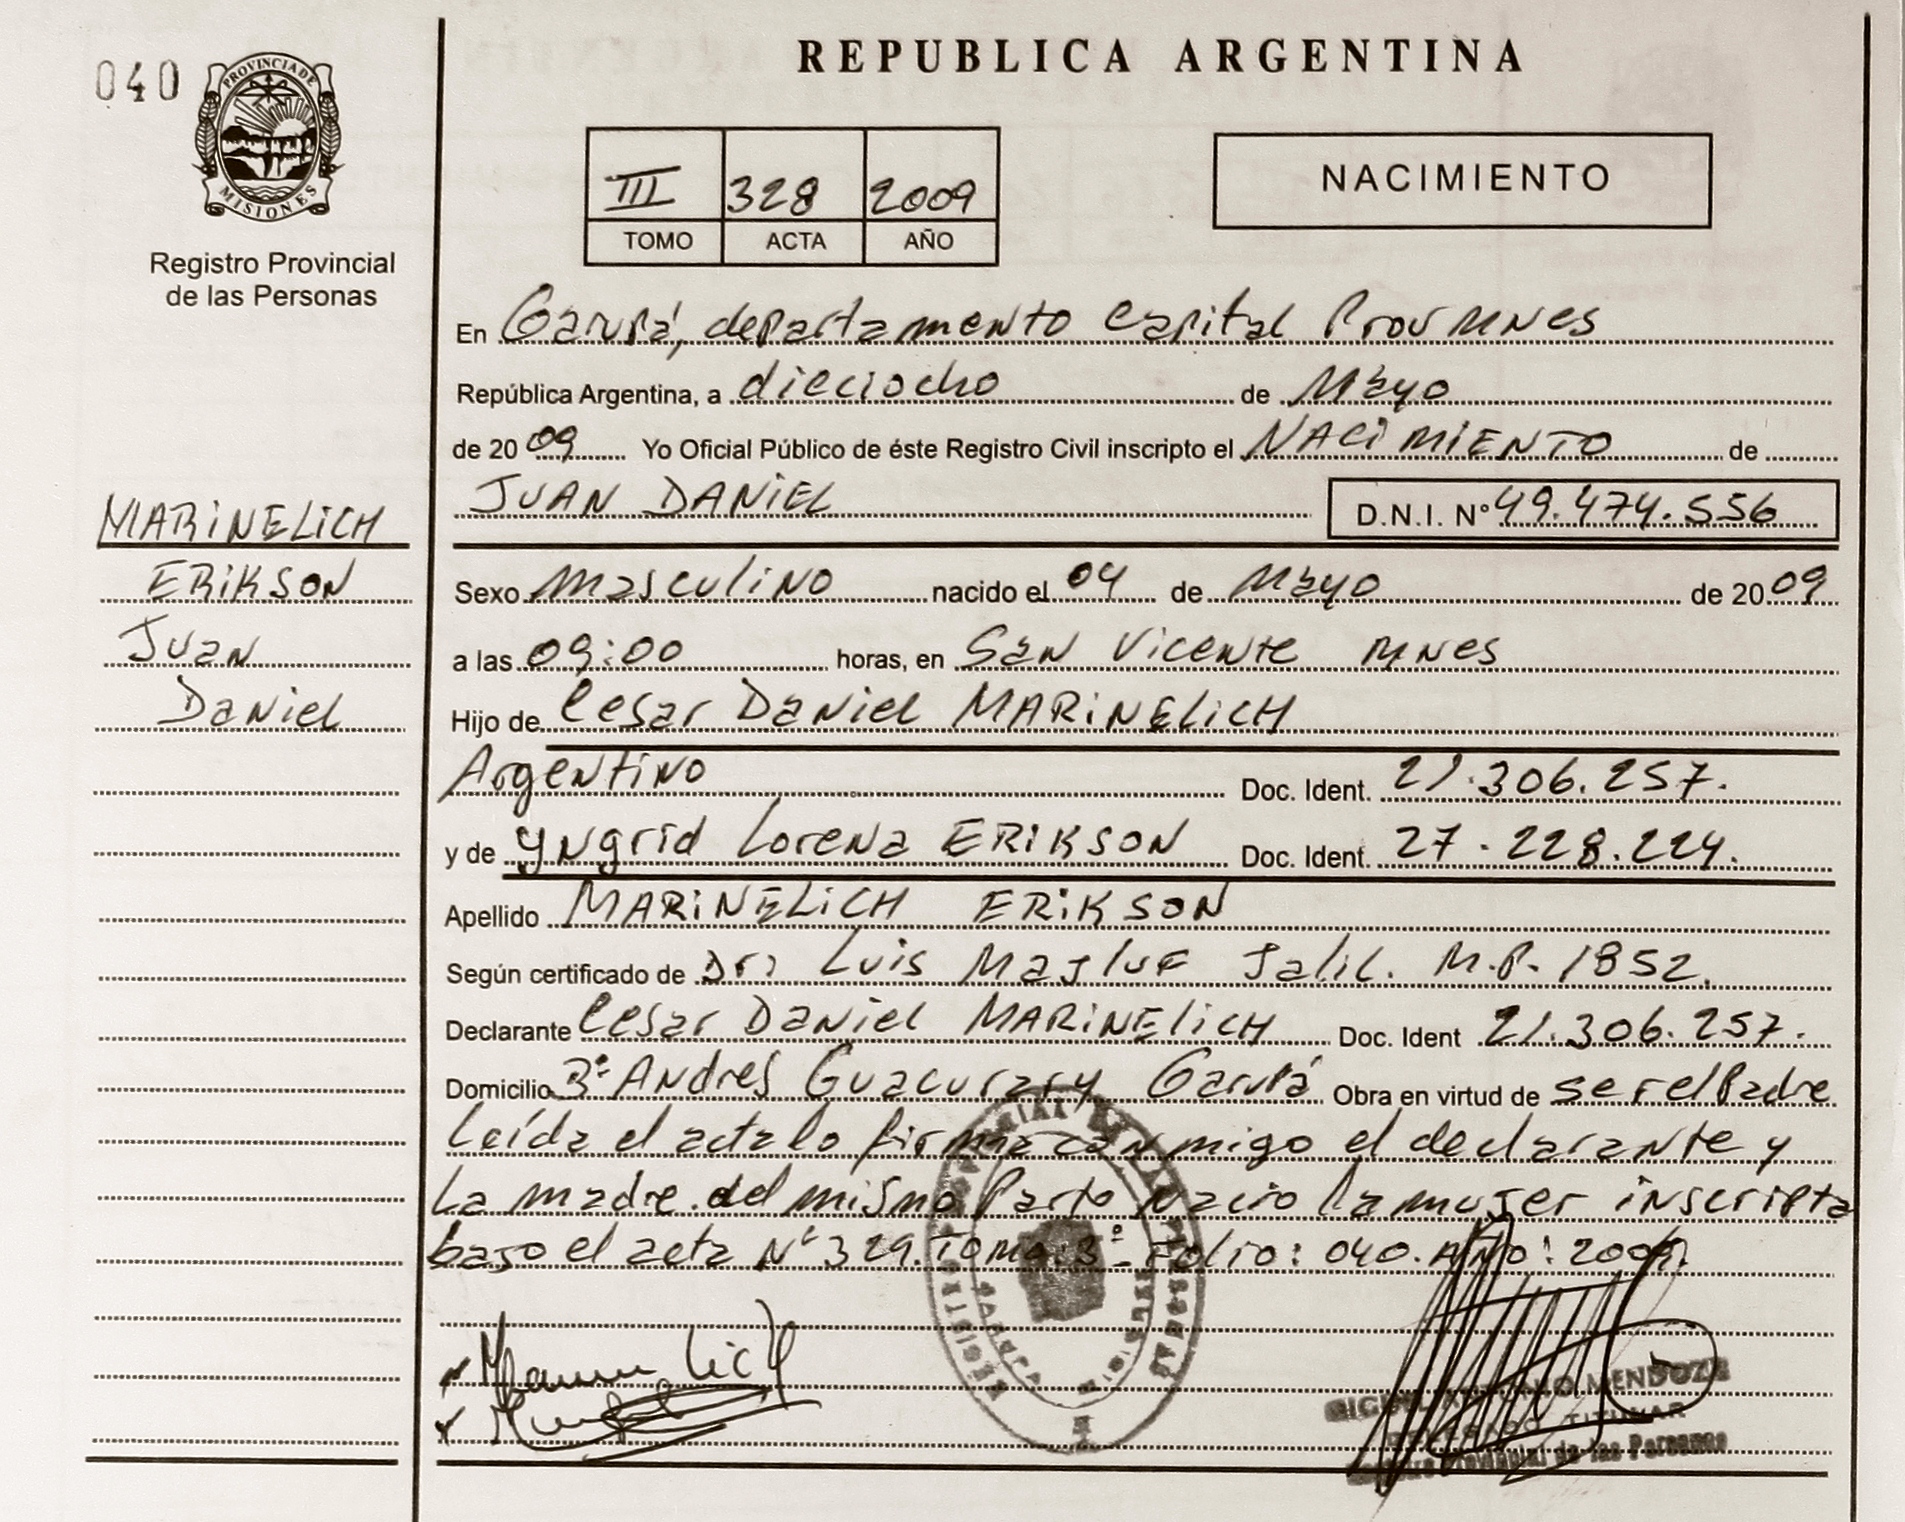 040
PROVINCIA DE
MISIONES
Registro Provincial
de las Personas
REPUBLICA ARGENTINA
III 328 2009
TOMO ACTA AÑO
NACIMIENTO
En Garupá, departamento Capital Prov Mnes
República Argentina, a dieciocho de Mayo
de 2009 Yo Oficial Público de éste Registro Civil inscripto el NACIMIENTO de
JUAN DANIEL D.N.I. N° 49.474.556
MARINELICH
ERIKSON
Juan
Daniel
Sexo Masculino nacido el 04 de Mayo de 2009
a las 09:00 horas, en San Vicente Mnes
Hijo de Cesar Daniel MARINELICH
Argentino Doc. Ident. 21.306.257.
y de Yngrid Lorena ERIKSON Doc. Ident. 27.228.224.
Apellido MARINELICH ERIKSON
Según certificado de Dr: Luis Majluf Jalil. M.P. 1852.
Declarante Cesar Daniel MARINELICH Doc. Ident 21.306.257.
Domicilio B° Andres Guacurary Garupá Obra en virtud de ser el Padre
Leída el acta lo firma conmigo el declarante y
La madre. del mismo Parto nacio la mujer inscripta
bajo el acta N° 329. Tomo: 3°- Folio: 040. Año: 2009.
MENDOZA
TITULAR
Provincial de las Personas